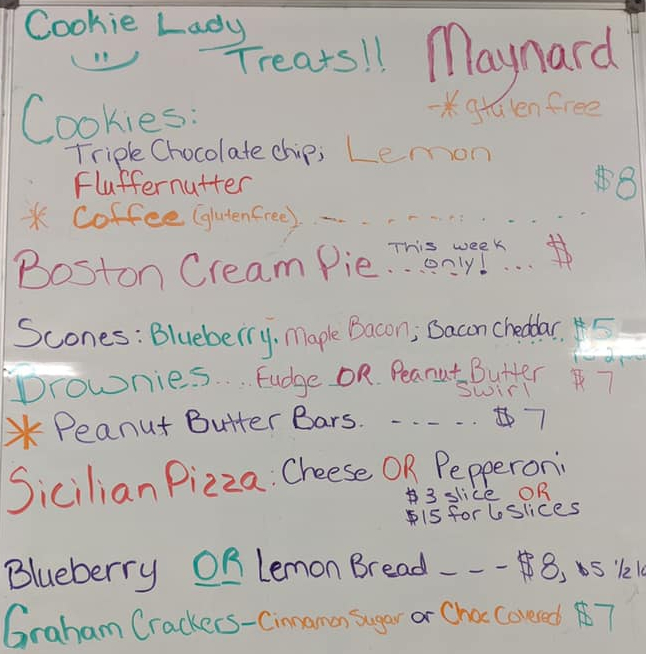 Cookie Lady
Treats!!
Maynard
-* gluten free
Cookies:
Triple Chocolate chip; Lemon
Fluffernutter
$8
* Coffee (gluten free)...........
Boston Cream Pie...This week only!... $
Scones: Blueberry, Maple Bacon; Bacon Cheddar, $5
Brownies.... Fudge OR Peanut Butter Swirl $7
* Peanut Butter Bars. ----.. $7
Sicilian Pizza: Cheese OR Pepperoni
$3 slice OR
$15 for 6 slices
Blueberry OR Lemon Bread --- $8, $5 1/2
Graham Crackers-Cinnamon Sugar or Choc Covered $7